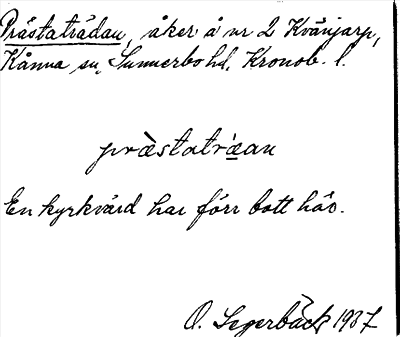 Prästaträdan, åker å nr 2 Kvänjarp,
Kånna sn, Sunnerbo hd, Kronob. l.
præ̀statræ̀an
En kyrkvärd har förr bott här.
O. Segerbäck 1937